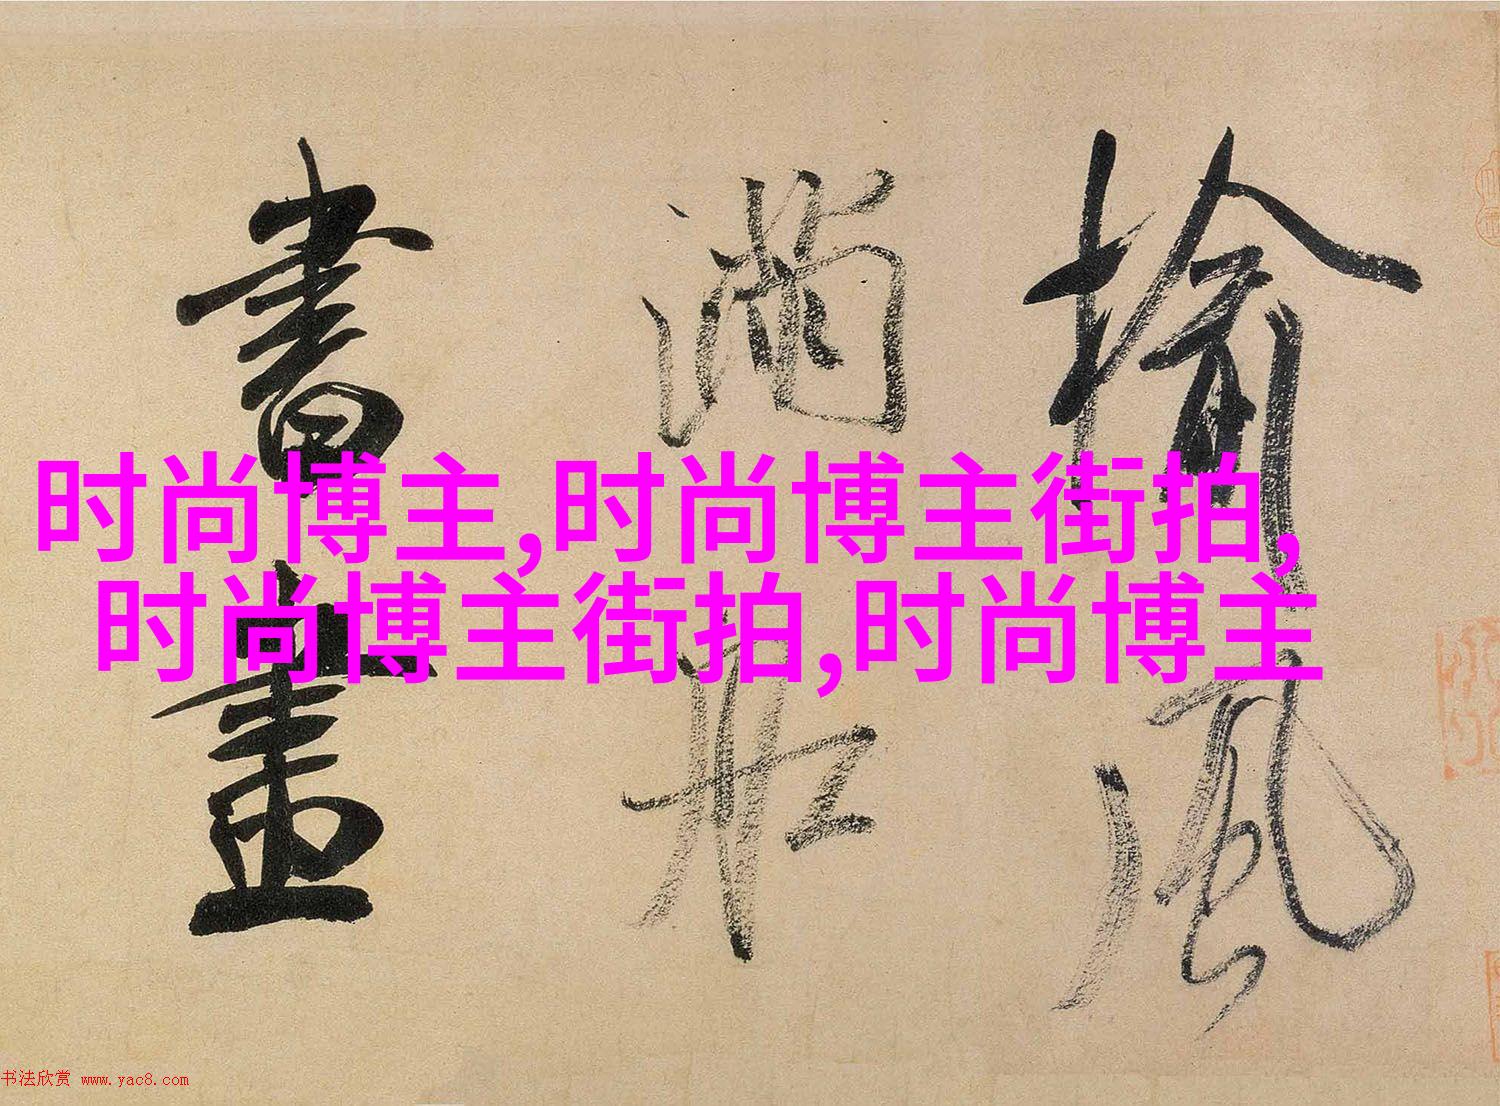 榆風
滿舡
書畫
时尚博主,时尚博主街拍,
时尚博主街拍,时尚博主
书法欣赏 www.yac8.com